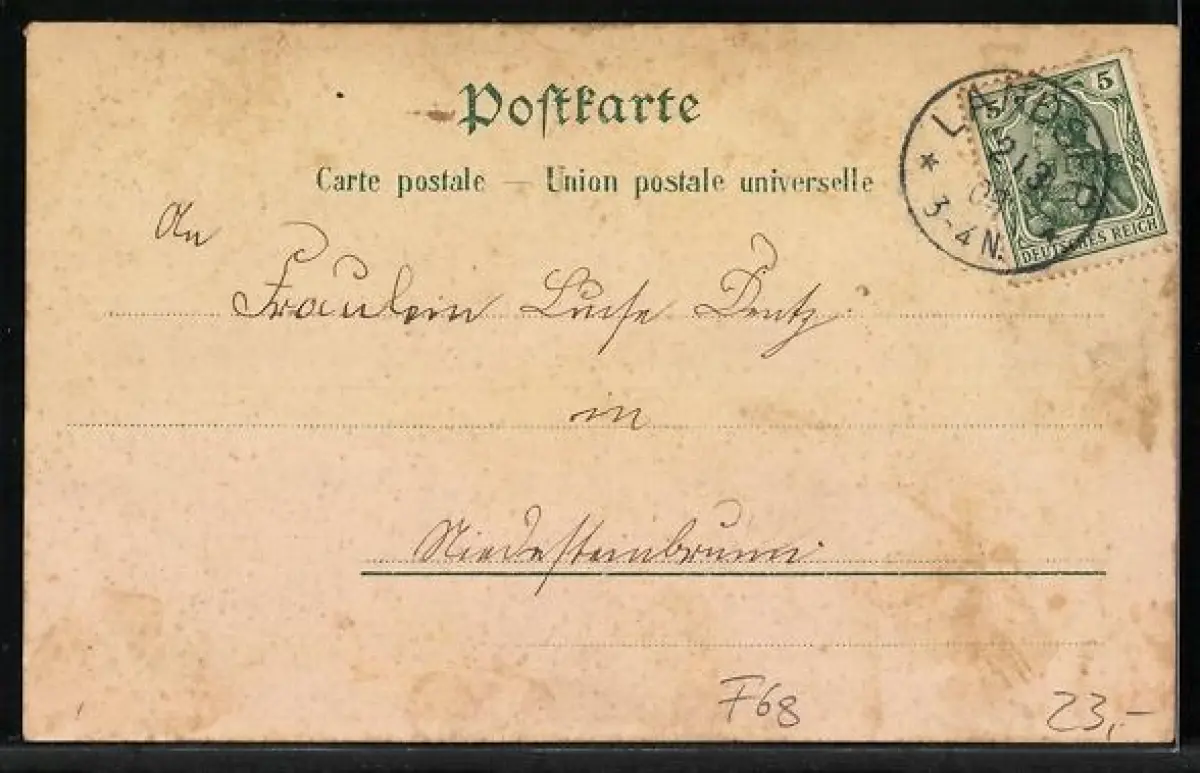 Postkarte
Carte postale — Union postale universelle
An
Fräulein Luise
in
F68
23,-
5 5
DEUTSCHES REICH
* 3-4 N.